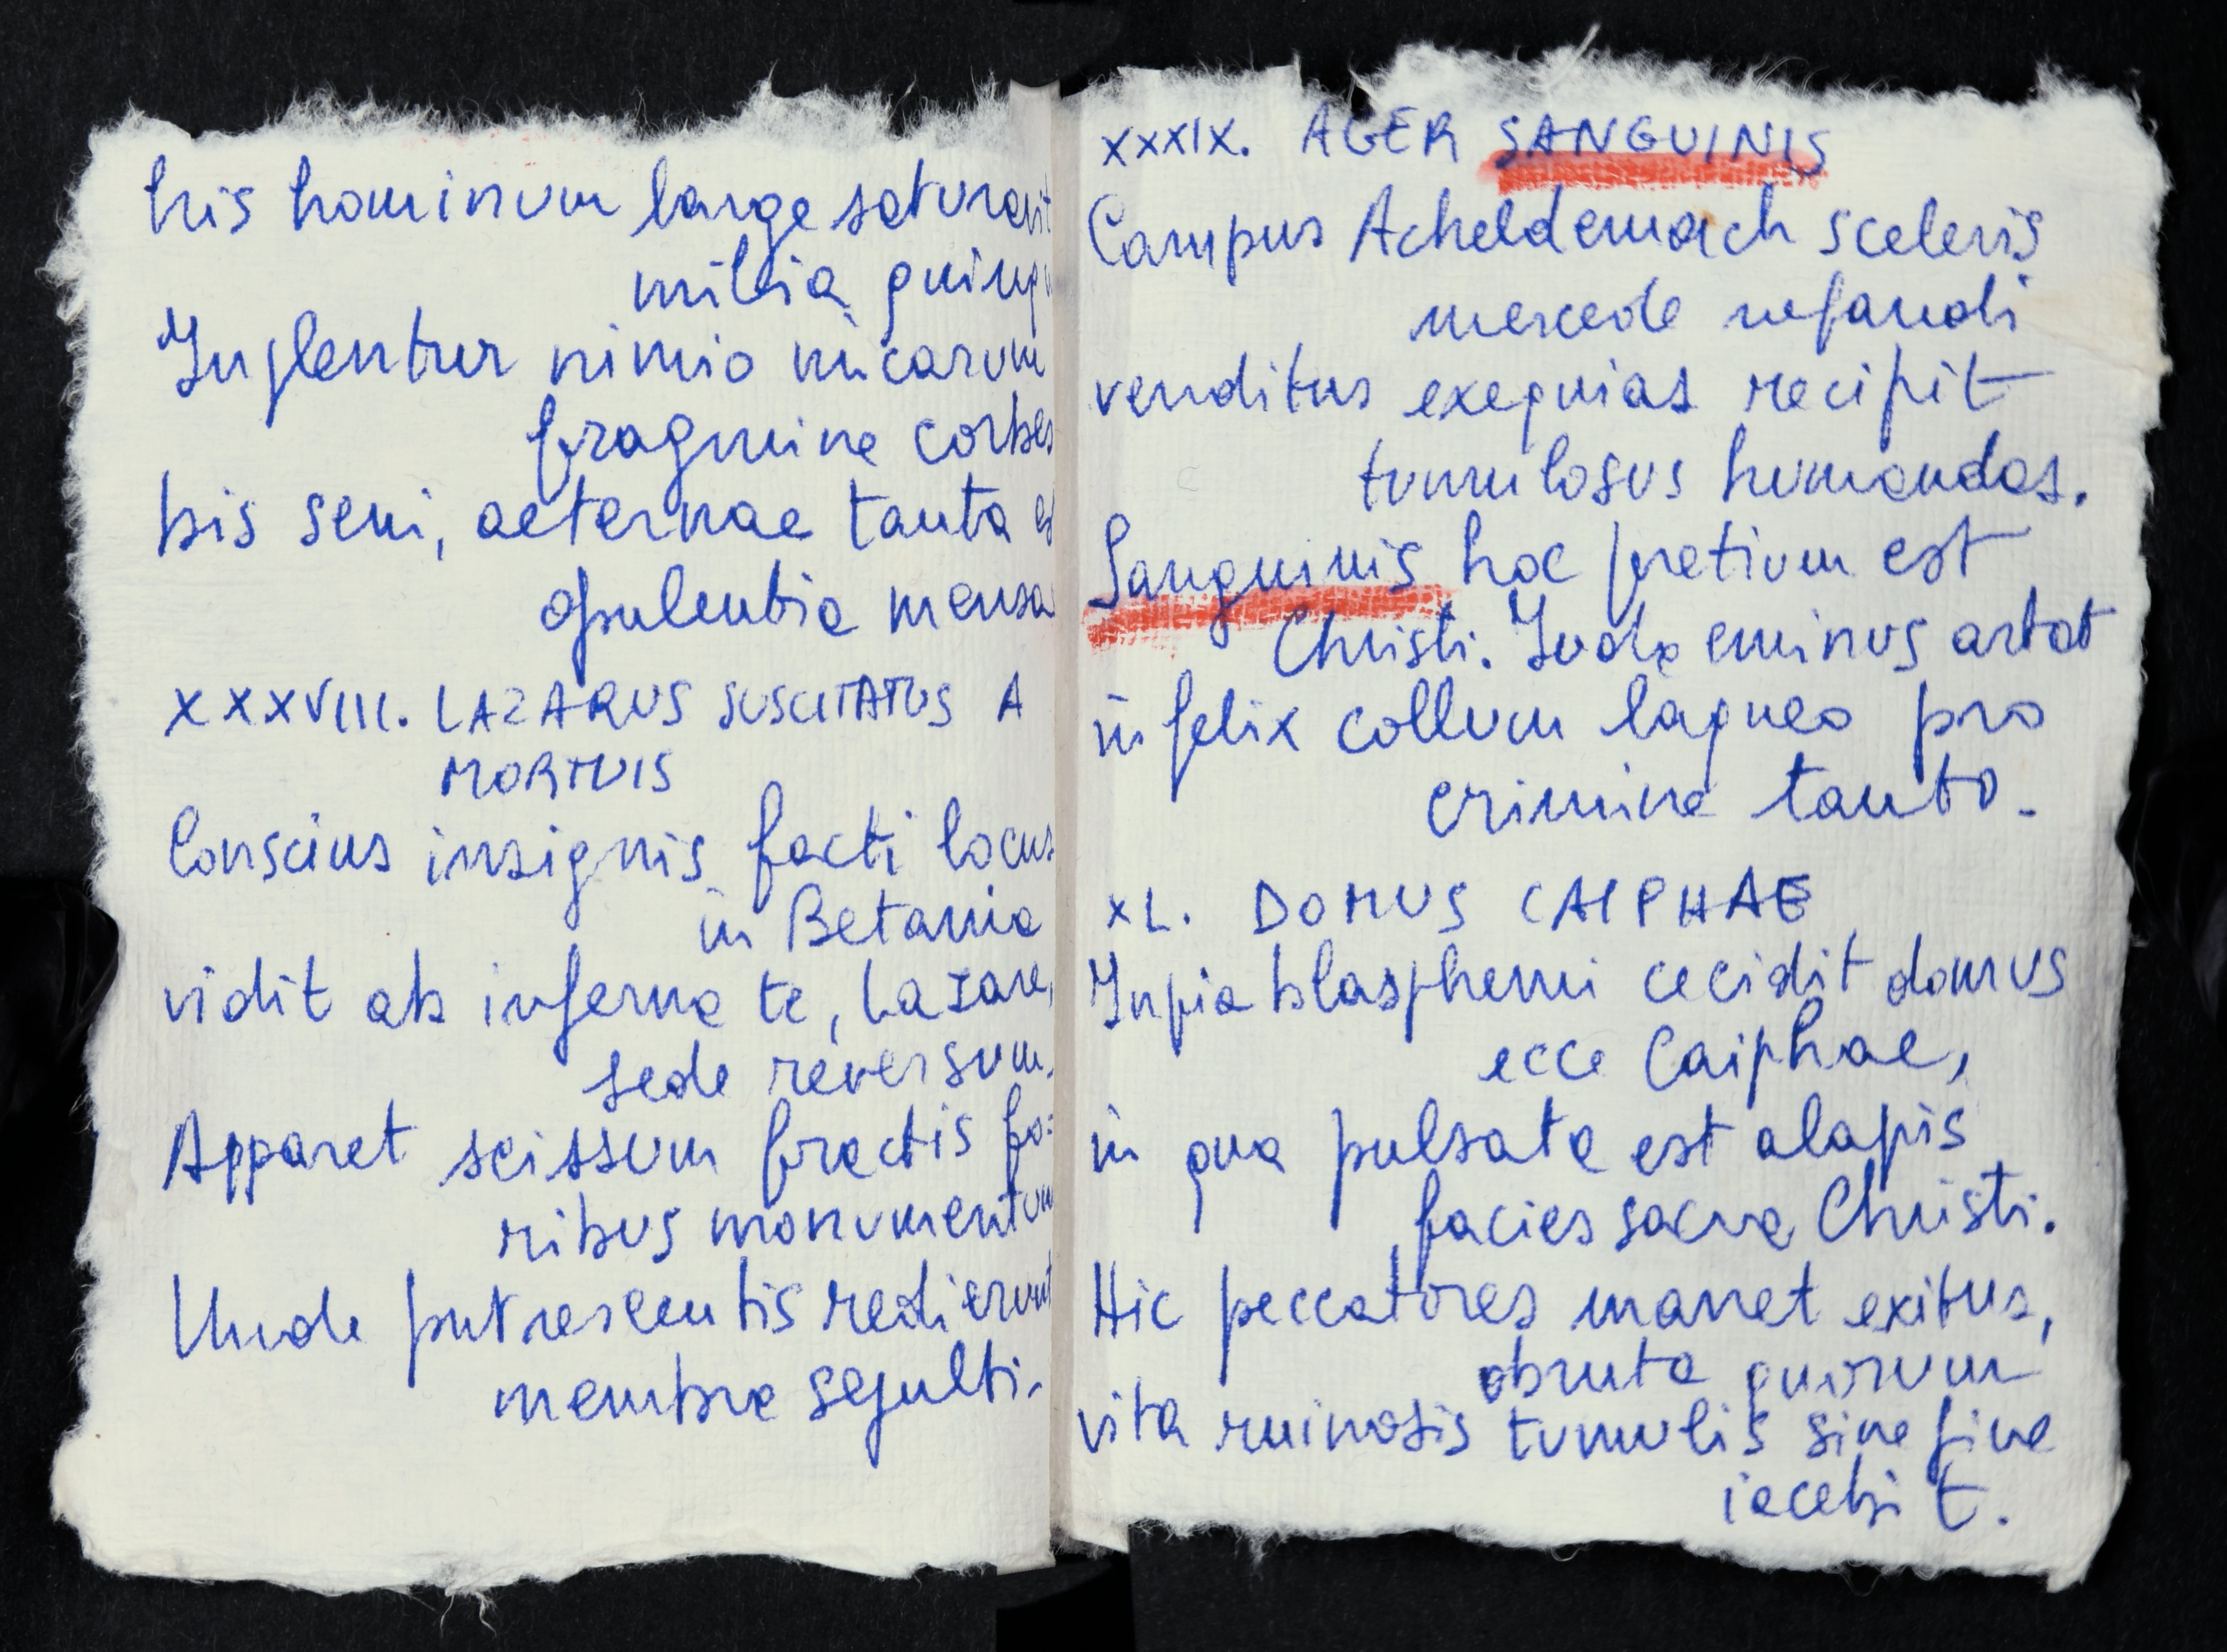 his hominum large saturavit
milia quinq
Inplentur nimio micarum
fragmine corbes
bis seni, aeternae tanta es
opulentia mensa
XXXVIII. LAZARUS SUSCITATUS A
MORTUIS
Conscius insignis facti locus
in Betania
vidit ab inferna te, Lazare,
sede reversum.
Apparet scissum fractis fo=
ribus monumentum
Unde putrescentis redierunt
membra sepulti.
XXXIX. AGER SANGUINIS
Campus Acheldemach sceleris
mercede nefandi
venditus exequias recipit
tumulosus humandas.
Sanguinis hoc pretium est
Christi. Iuda eminus artat
infelix collum laqueo pro
crimine tanto.
XL. DOMUS CAIPHAE
Inpia blasphemi cecidit domus
ecce Caiphae,
in qua pulsata est alapis
facies sacra Christi.
Hic peccatores manet exitus,
obruta quorum
vita ruinosis tumulis sine fine
iacebit.